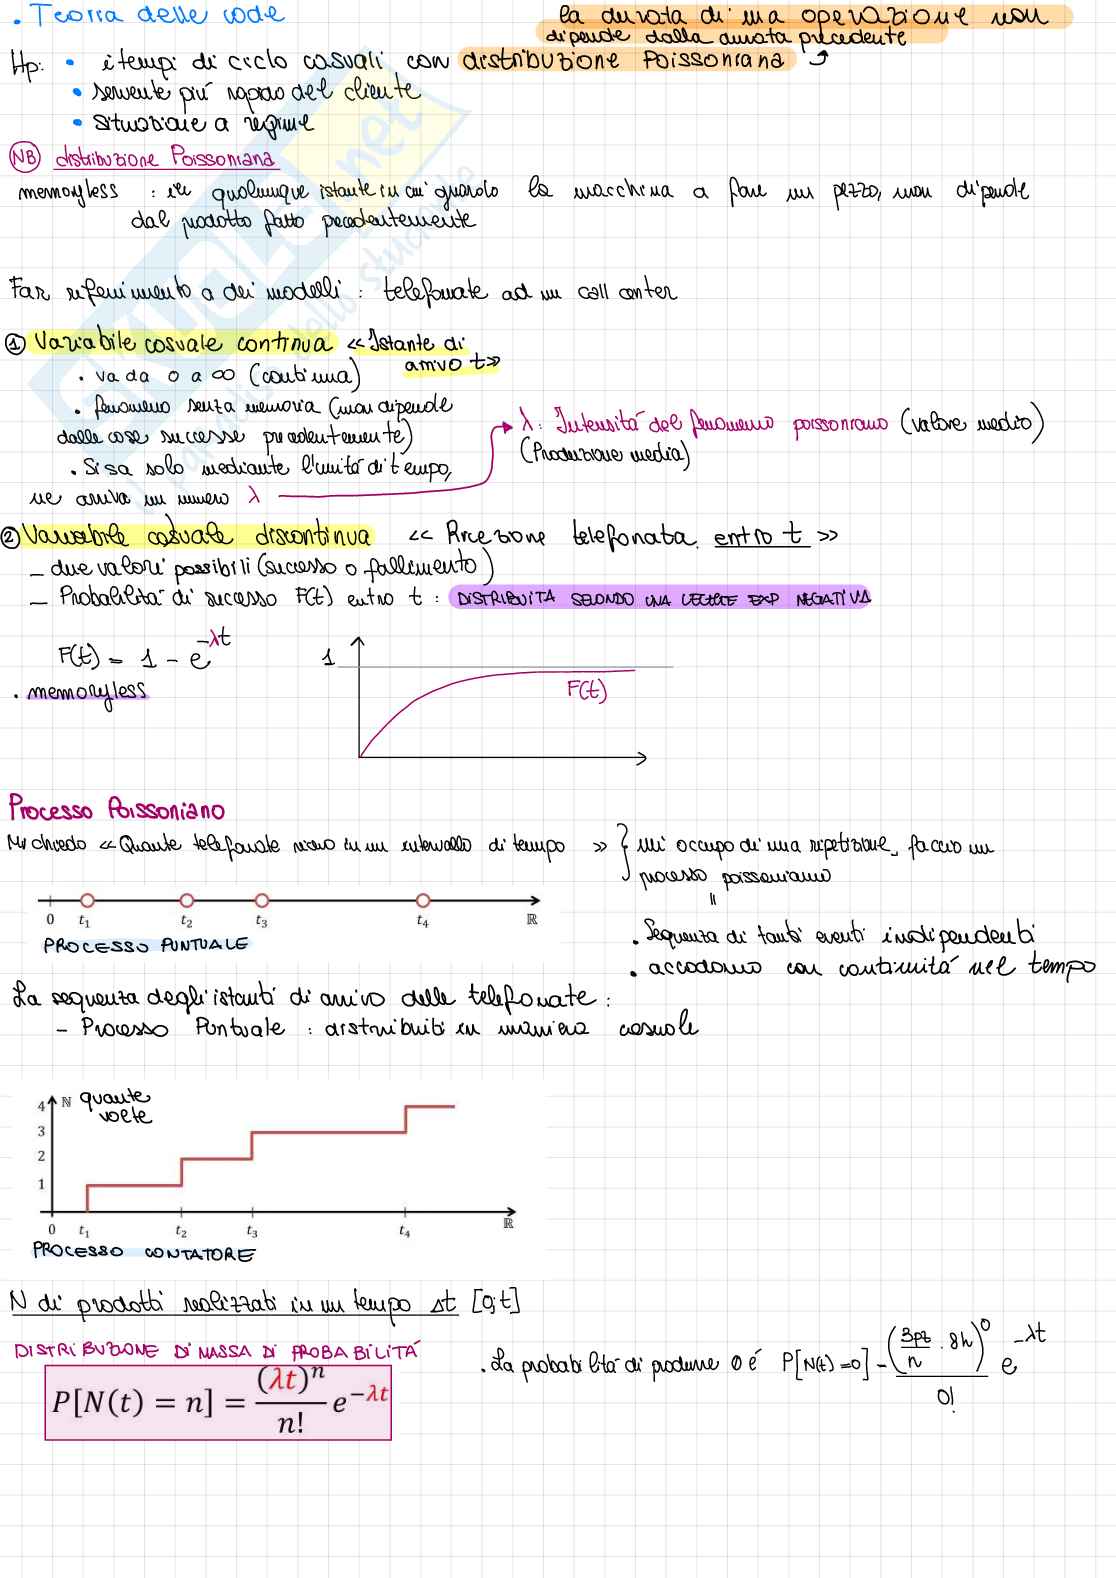 . Teoria delle code
la durata di una operazione non
dipende dalla durata precedente
Hp: • i tempi di ciclo casuali con distribuzione Poissoniana
• servente più rapido del cliente
• situazione a regime
NB distribuzione Poissoniana
memoryless : in qualunque istante in cui guardo la macchina a fare un pezzo, non dipende
dal prodotto fatto precedentemente
Far riferimento a dei modelli : telefonate ad un call center
1 Variabile casuale continua << Istante di
arrivo t>>
. va da 0 a ∞ (continua)
. fenomeno senza memoria (non dipende
dalle cose successe precedentemente)
. Si sa solo mediante l'unità di tempo,
ne arriva un numero λ
λ: Intensità del fenomeno poissoniano (valore medio)
(Produzione media)
2 Variabile casuale discontinua << Ricezione telefonata entro t >>
- due valori possibili (successo o fallimento)
- Probabilità di successo F(t) entro t : DISTRIBUITA SECONDO UNA LEGGE EXP NEGATIVA
F(t) = 1 - e^-λt
. memoryless
1
F(t)
Processo Poissoniano
Mi chiedo << Quante telefonate ricevo in un intervallo di tempo >> } mi occupo di una ripetizione, faccio un
processo poissoniano
=
0 t₁ t₂ t₃ t₄ ℝ
PROCESSO PUNTUALE
. Sequenza di tanti eventi indipendenti
. accadono con continuità nel tempo
La sequenza degli istanti di arrivo delle telefonate :
- Processo Puntuale : distribuiti in maniera casuale
4 ℕ quante
volte
3
2
1
0 t₁ t₂ t₃ t₄ ℝ
PROCESSO CONTATORE
N di prodotti realizzati in un tempo Δt [0;t]
DISTRIBUZIONE DI MASSA DI PROBABILITÀ
P[N(t) = n] = (λt)ⁿ / n! e^−λt
. La probabilità di produrre 0 è P[N(t)=0] - (3pz/h . 8h)⁰ / 0! e^-λt